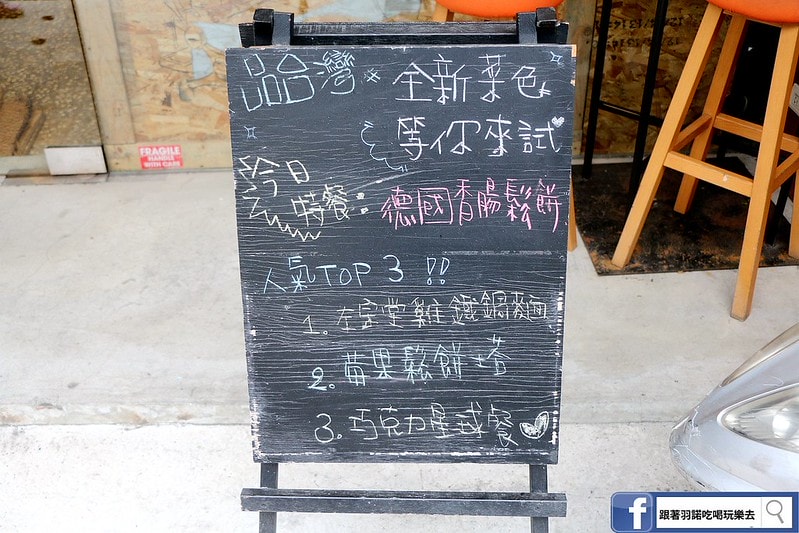 品台灣 × 全新菜色
等你來試
今日
特餐: 德國香腸鬆餅
人氣TOP 3 !!
1. 左宗堂雞鐵鍋麵
2. 莓果鬆餅塔
3. 巧克力星球餐
FRAGILE
HANDLE
WITH CARE
f 跟著羽諾吃喝玩樂去